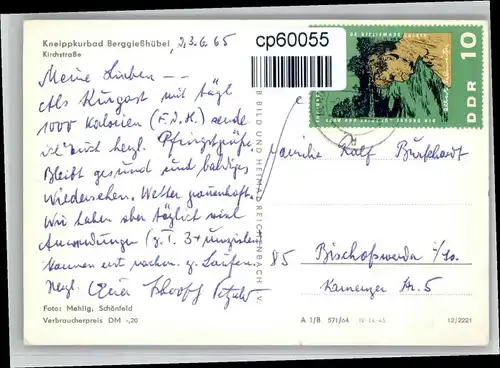 Kneippkurbad Berggießhübel
Kirchstraße
2,3.6.65
cp60055
DDR 10
Meine Lieben --
Als Kurgast mit tägl
1000 Kalorien (F.d.H.) sende
ich euch herzl. Pfingstgrüße.
Bleibt gesund und baldiges
Wiedersehen. Wetter grauenhaft.
Wir haben aber täglich viel
Anwendungen (z.T. 3+
kommen erst nachm. z. Laufen.
Herzl. Euer
Familie Rolf Burkhardt
85 Bischofswerda i/Sa.
Kamenzer Str. 5
BILD UND HEIMAT REICHENBACH I. V.
Foto: Mehlig, Schönfeld
Verbraucherpreis DM -,20
A 1/B 571/64 IV-14-45 12/2221